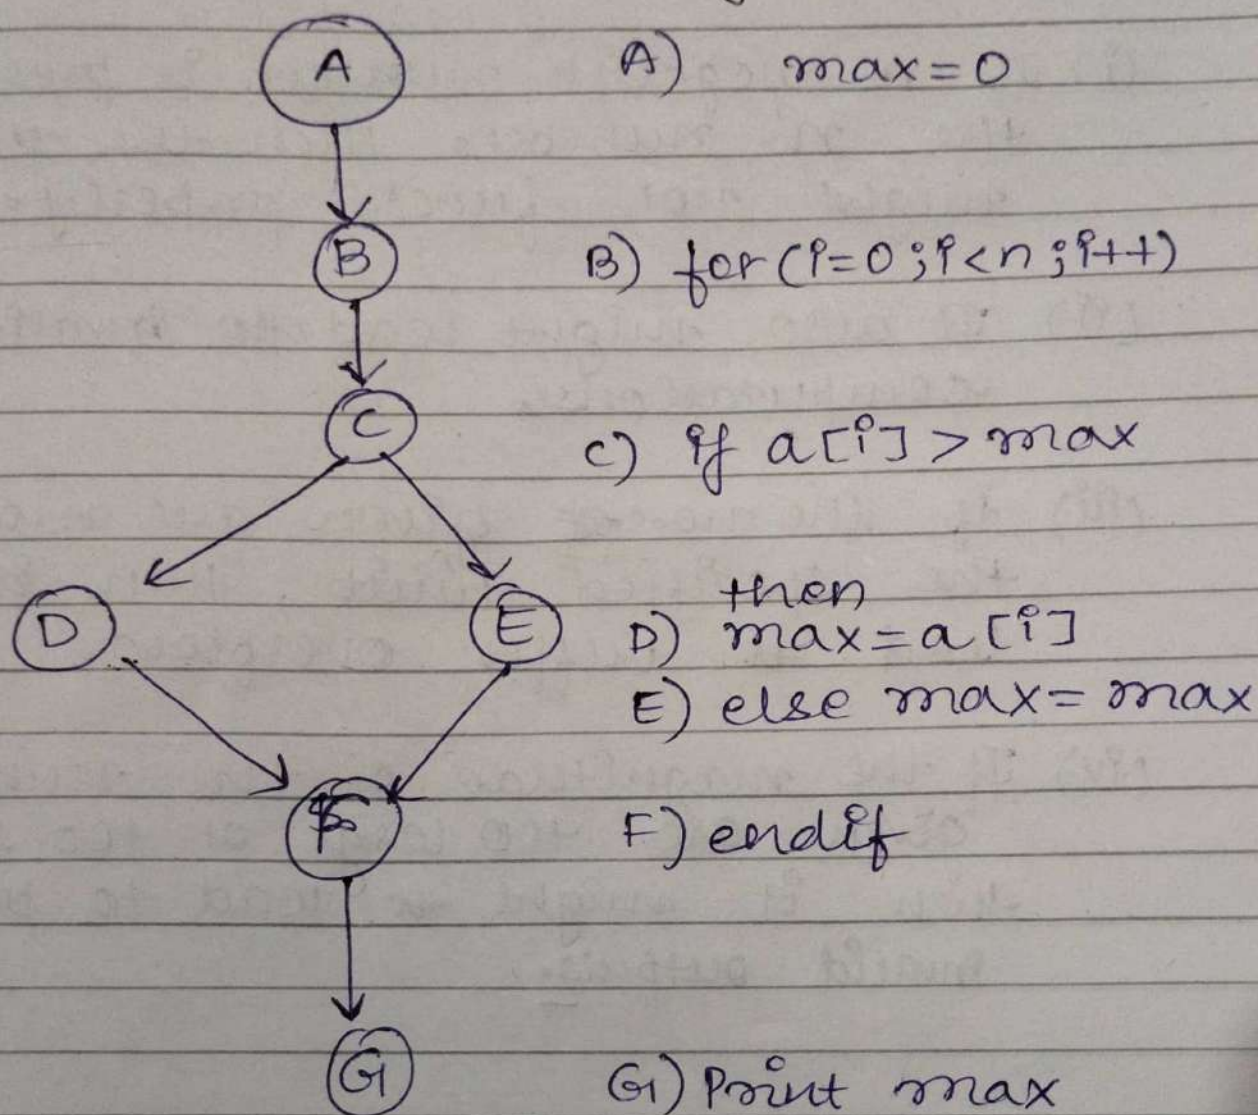 A
A) max=0
B
B) for(i=0;i<n;i++)
C
C) if a[i]>max
D
E
then
D) max=a[i]
E) else max=max
F
F) endif
G
G) Print max